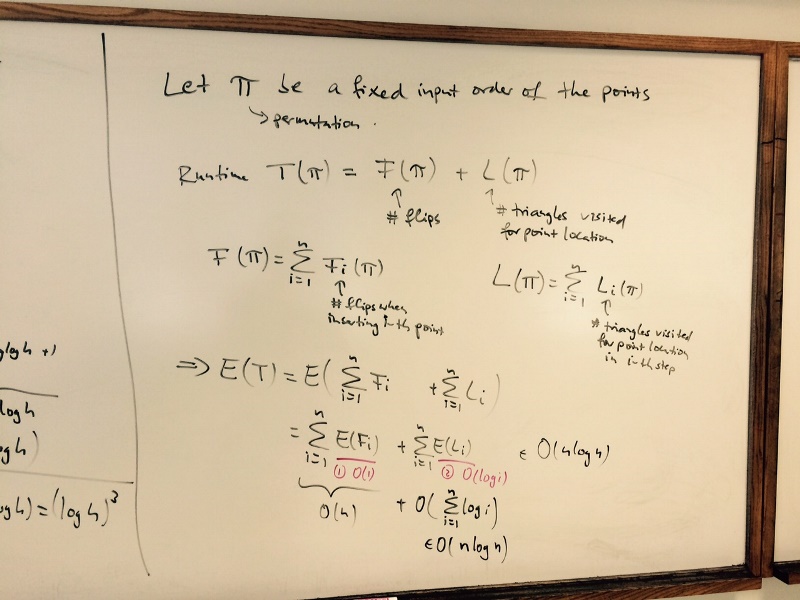 Let π be a fixed input order of the points
→ permutation.
Runtime T(π) = F(π) + L(π)
↑ # flips
↑ # triangles visited
for point location
F(π) = ∑_{i=1}^{n} F_i(π)
↑
# flips when
inserting i-th point
L(π) = ∑_{i=1}^{n} L_i(π)
↑
# triangles visited
for point location
in i-th step
⇒ E(T) = E( ∑_{i=1}^{n} F_i + ∑_{i=1}^{n} L_i )
= ∑_{i=1}^{n} E(F_i) + ∑_{i=1}^{n} E(L_i) ∈ O(n log n)
① O(1) ② O(log i)
O(n) + O( ∑_{i=1}^{n} log i )
∈ O(n log n)
log n + 1
log n
log n)
log n) = (log n)^3